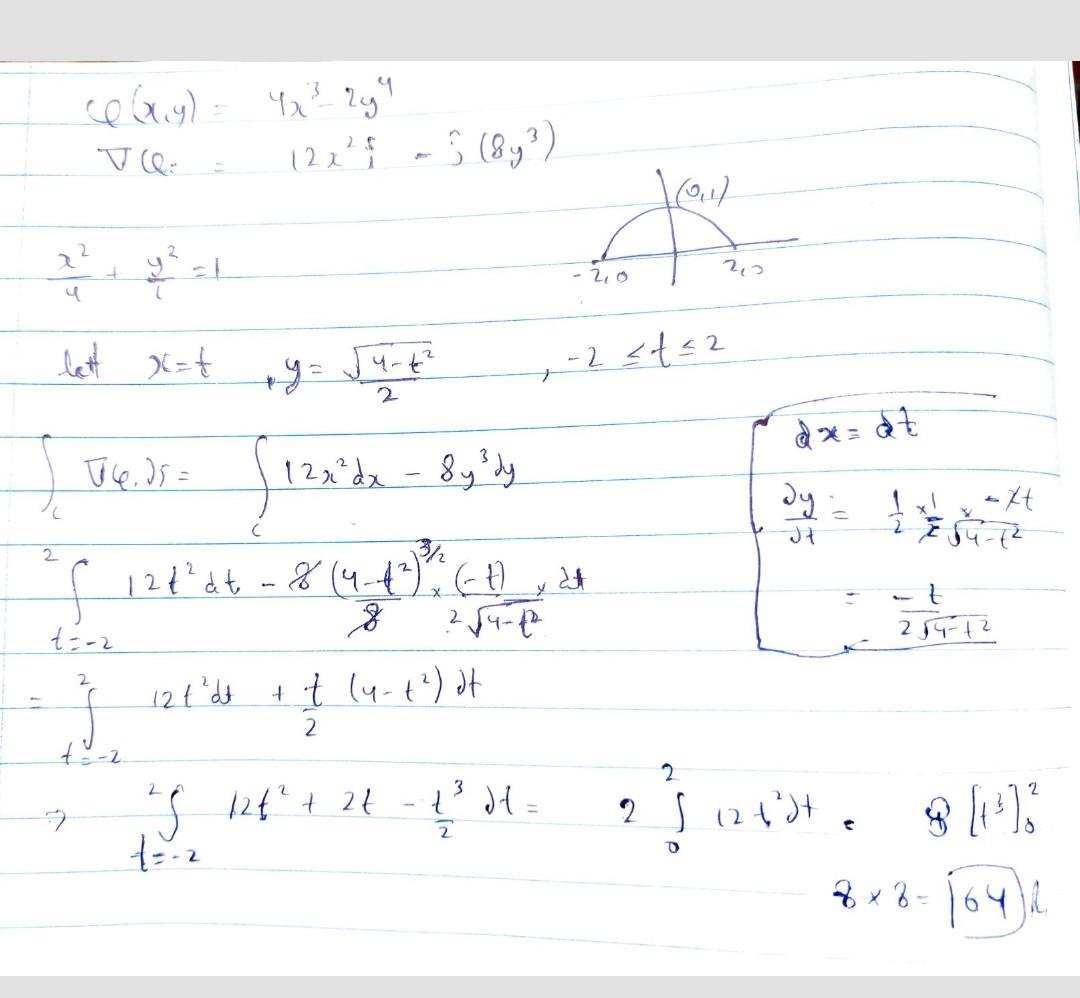 φ(x,y) = 4x³ - 2y⁴
∇φ = 12x² î - ĵ (8y³)
(0,1)
-2,0
2,0
x²/4 + y²/1 = 1
let x=t , y = √(4-t²)/2 , -2 ≤ t ≤ 2
dx = dt
∫_C ∇φ.ds = ∫_C 12x²dx - 8y³dy
dy/dt = 1/2 × 1/2 × -2t/√(4-t²)
∫_{t=-2}^{2} 12t²dt - 8 (4-t²)^{3/2}/8 × (-t)/(2√(4-t²)) × dt
= -t/(2√(4-t²))
= ∫_{t=-2}^{2} 12t²dt + t/2 (4-t²) dt
⇒ ∫_{t=-2}^{2} 12t² + 2t - t³/2 dt = 2 ∫_0^2 12t²dt = 8 [t³]_0^2
8 × 8 = 64